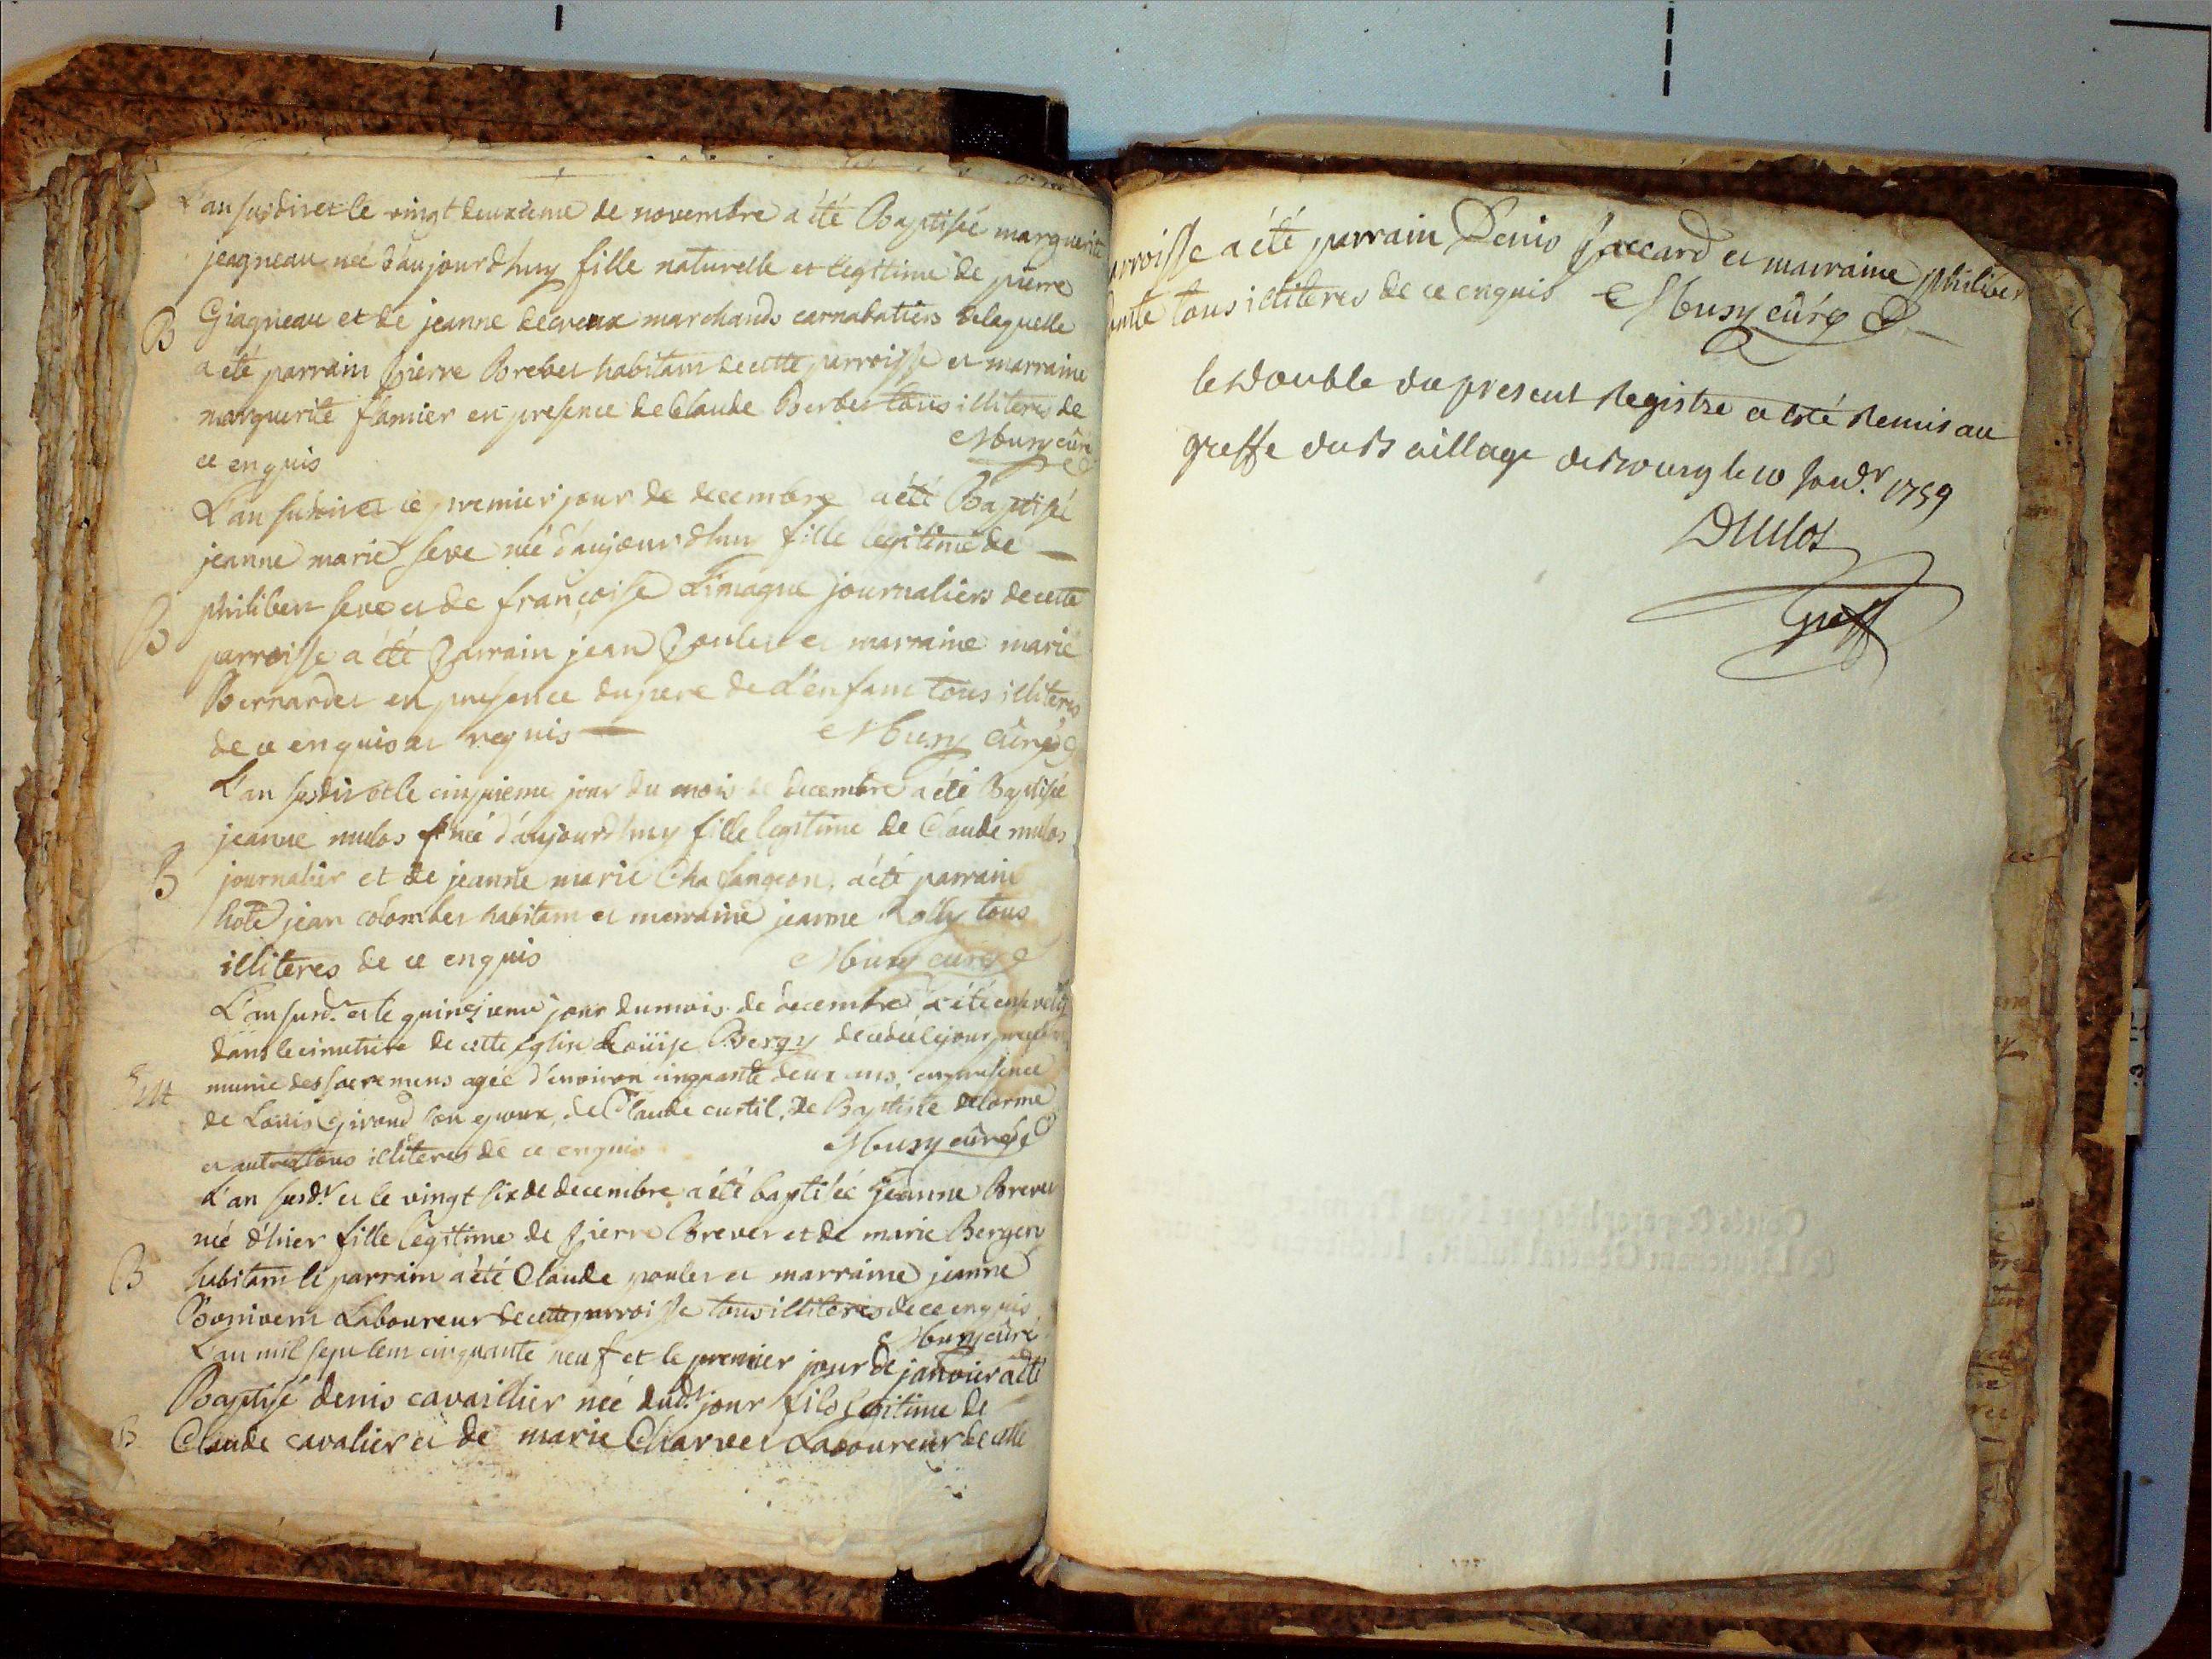 L'an susdit et le vingt deuxieme de novembre a été Baptisée marguerite
jeagneau née d'aujourdhuy fille naturelle et legitime de pierre
B
Giagneau et de jeanne decreux marchands carnabatiers delaquelle
a été parrain Pierre Brebet habitant decette parroisse et marraine
marguerite flamier en presence de Claude Berbet tous illiteres de
ce enquis
Musy curé
L'an susdit et le premier jour de decembre a été Baptisé
jeanne marie seve née d'aujourdhuy fille legitime de
B
philibert seve et de françoise Limagne journaliers decette
parroisse a été Parrain jean Poulet et marraine marie
Bernardet en presence du pere de L'enfant tous illiteres
de ce enquis et requis
Musy curé
L'an susdit et le cinquieme jour du mois de decembre a été Baptisée
jeanne mulos née d'aujourdhuy fille legitime de Claude mulos
B
journalier et de jeanne marie Chasangeon, a été parrain
hote jean colombet habitant et marraine jeanne Rolly tous
illiteres de ce enquis
Musy curé
L'an susd. et le quinzieme jour du mois de decembre a été
dans le cimetiere de cette eglise Loüise Bergy decedée le jour
munie des sacremens agée d'environ cinquante deux ans, en presence
de Louis Giroud son epoux, de Claude curtil, de Baptiste delorme
et autres tous illiteres de ce enquis
Musy curé
L'an susdt. et le vingt six de decembre a été baptisée jeanne Brevet
née d'hier fille legitime de Pierre Brevet et de marie Bergen
B
habitant le parrain a été Claude poulet et marraine jeanne
Laboureur decette parroisse tous illiteres de ce enquis
Musy curé
L'an mil sept cent cinquante neuf et le premier jour de janvier a été
Baptisé denis cavaillier née dudt. jour fils legitime de
B
Claude cavalier et de marie Charvet Laboureur de cette
parroisse a été parrain Denis Jaccard et marraine philiber
tous illiteres de ce enquis Musy curé
le Double du present Registre a esté Remis au
greffe du Baillage de Bourg le 10 1759
Greff